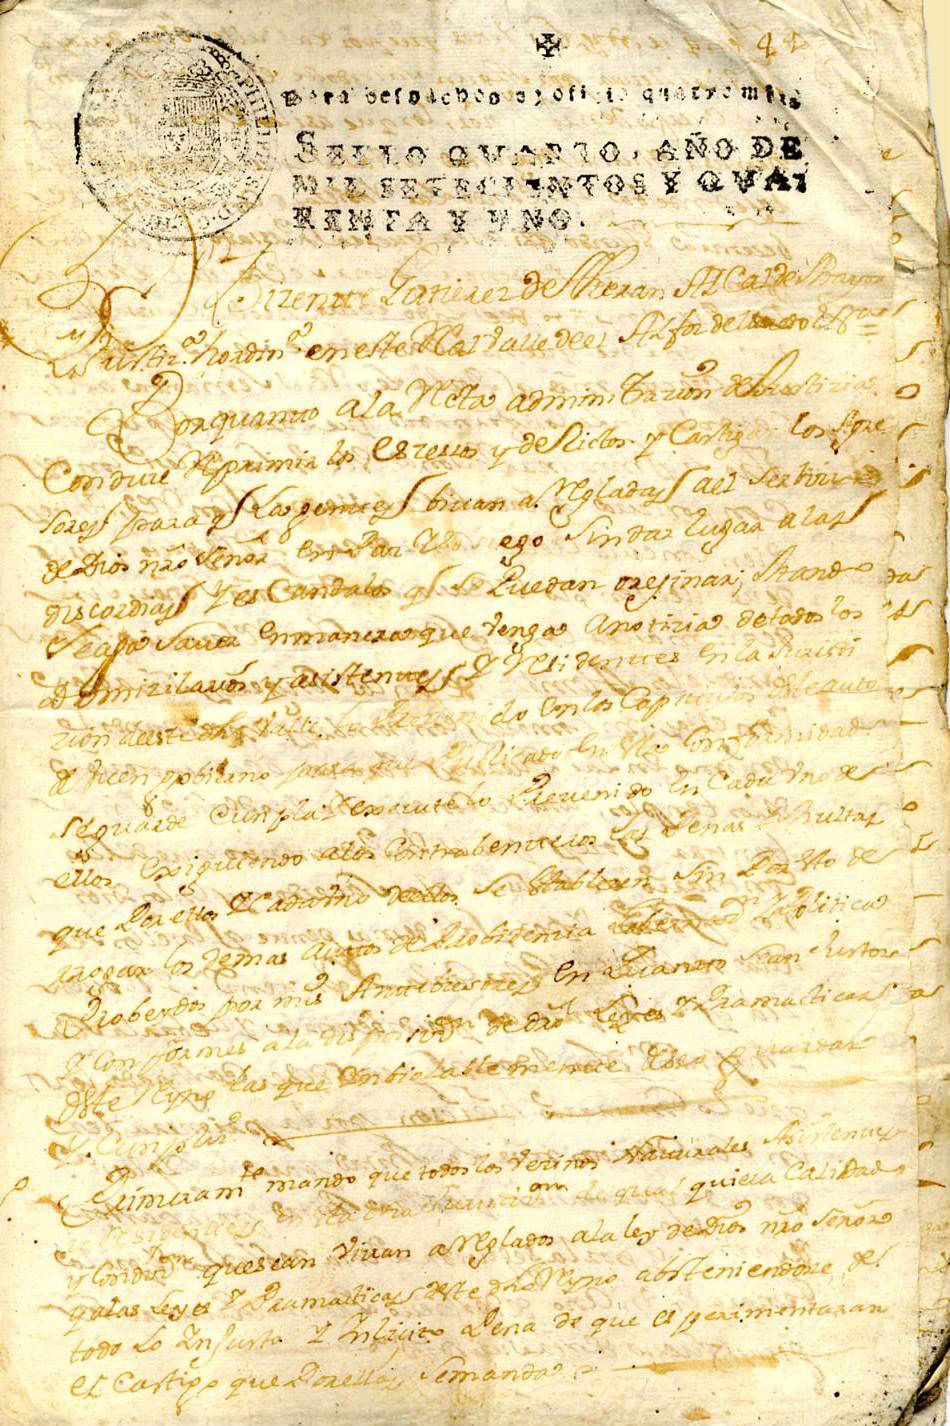 44
Para despachos de oficio quatro mrs
SELLO QVARTO, AÑO DE
MIL SETECIENTOS Y QVA
RENTA Y VNO.
Bizente Gutierrez de Theran Alcalde Mayor
y Justiz.ª hordin.ª en este Rl Valle de el Alfoz de
Por quanto a la Recta administrazion de Justizia
Conduze Reprimir los Exzesos y delictos y Castigar los Agre
sores para q las gentes bivan arregladas a el servizio
de Dios nro Señor en Paz y sosiego sin dar lugar a las
discordias y escandalos q se Puedan orijinar;
se aga saver en manera que venga a notizia de todos los
domiziliarios y asistentes y Residentes en la Jurisdi
zion deeste dho Valle lo en los Capitulos de auto
de buen gobierno para que Publicado en
se guarde Cunpla y execute lo Prevenido en Cada Uno de
ellos exigiendo a los Contrabentores las Penas y Multas
que Por ellos y Cada Uno dellos se establezen sin Por esto de
rrogar los demas autos de Probidencia y Politica
Proberdos por mis Antezesores en quanto sean Justos
y Conformes a la disposizion de dro Leyes y Pramacticas
deste Reyno las que imbiolablemente guardar
y Cunplir
Primeram.te mando que todos los vezinos Naturales Asistentes
y Residentes en esta dha Jurisdizion de qual quiera Calidad
y Condizion que sean vivan arreglados a la ley de Dios nro Señor
y a las Leyes y Pramacticas deste dho Reyno absteniendose de
todo lo Injusto y Inlicito Pena de que esperimentaran
el Castigo que Por ellas se manda